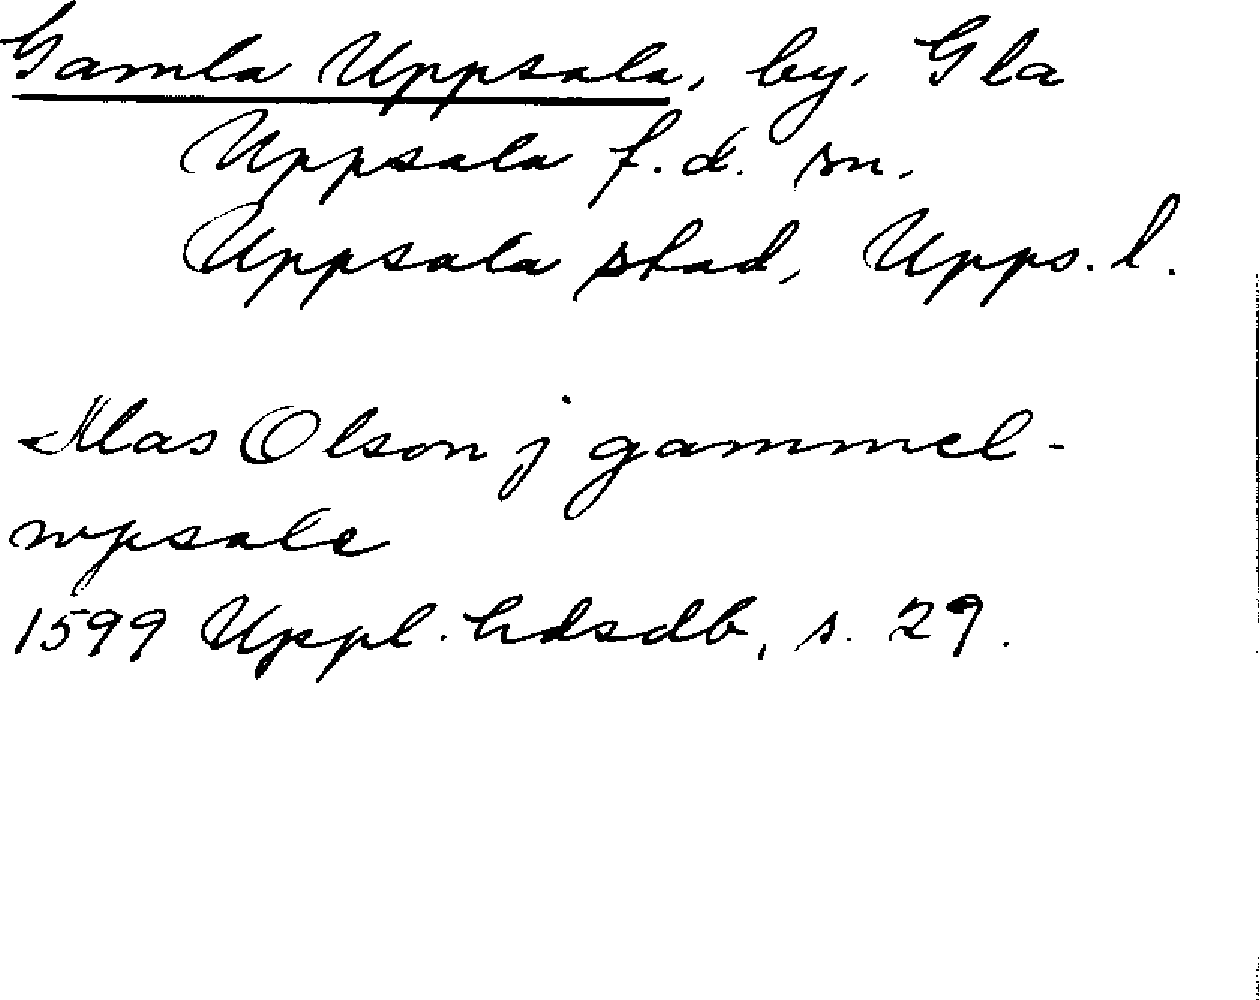 Gamla Uppsala, by, Gla
Uppsala f.d. sn.
Uppsala stad, Upps. l.
Klas Olson j gammel-
wpsale
1599 Uppl. hdsdb, s. 29.